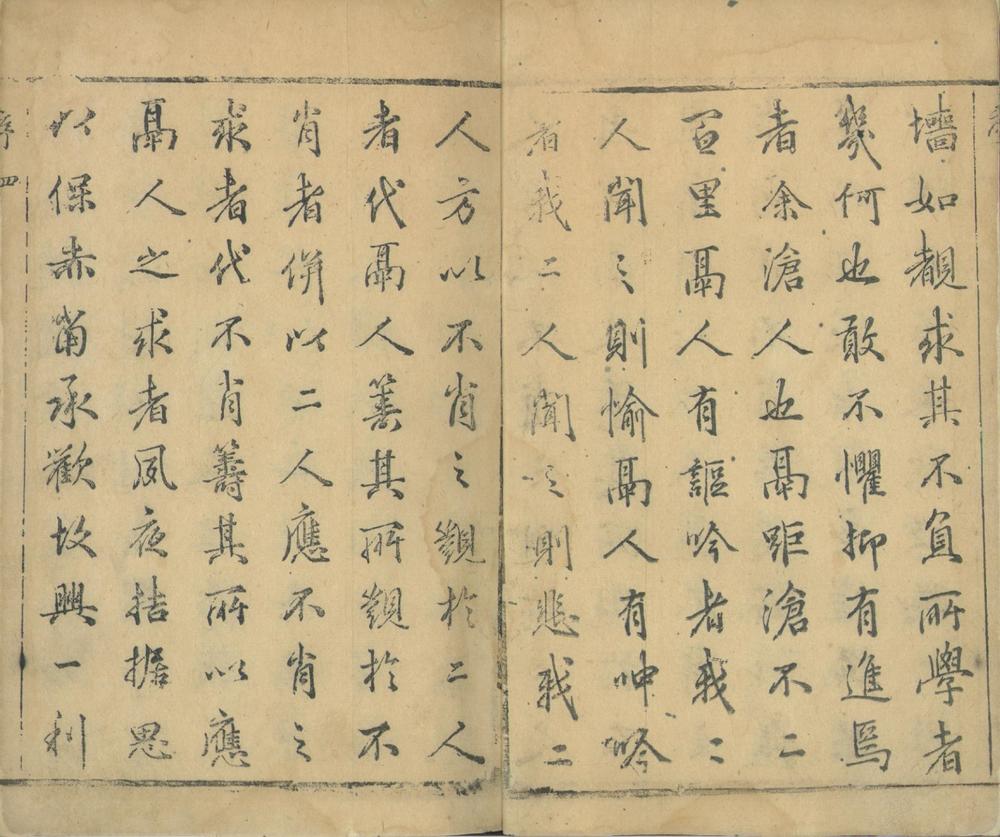 墻如覩求其不負所學者
幾何也敢不懼抑有進焉
者余滄人也鬲距滄不二
百里鬲人有謳吟者我二
人聞之則愉鬲人有呻吟
者我二人聞之則悲我二
人方以不肖之觀於二人
者代鬲人籌其所觀於不
肖者併以二人應不肖之
求者代不肖籌其所以應
鬲人之求者夙夜拮据思
以保赤當承歡故興一利
序 四